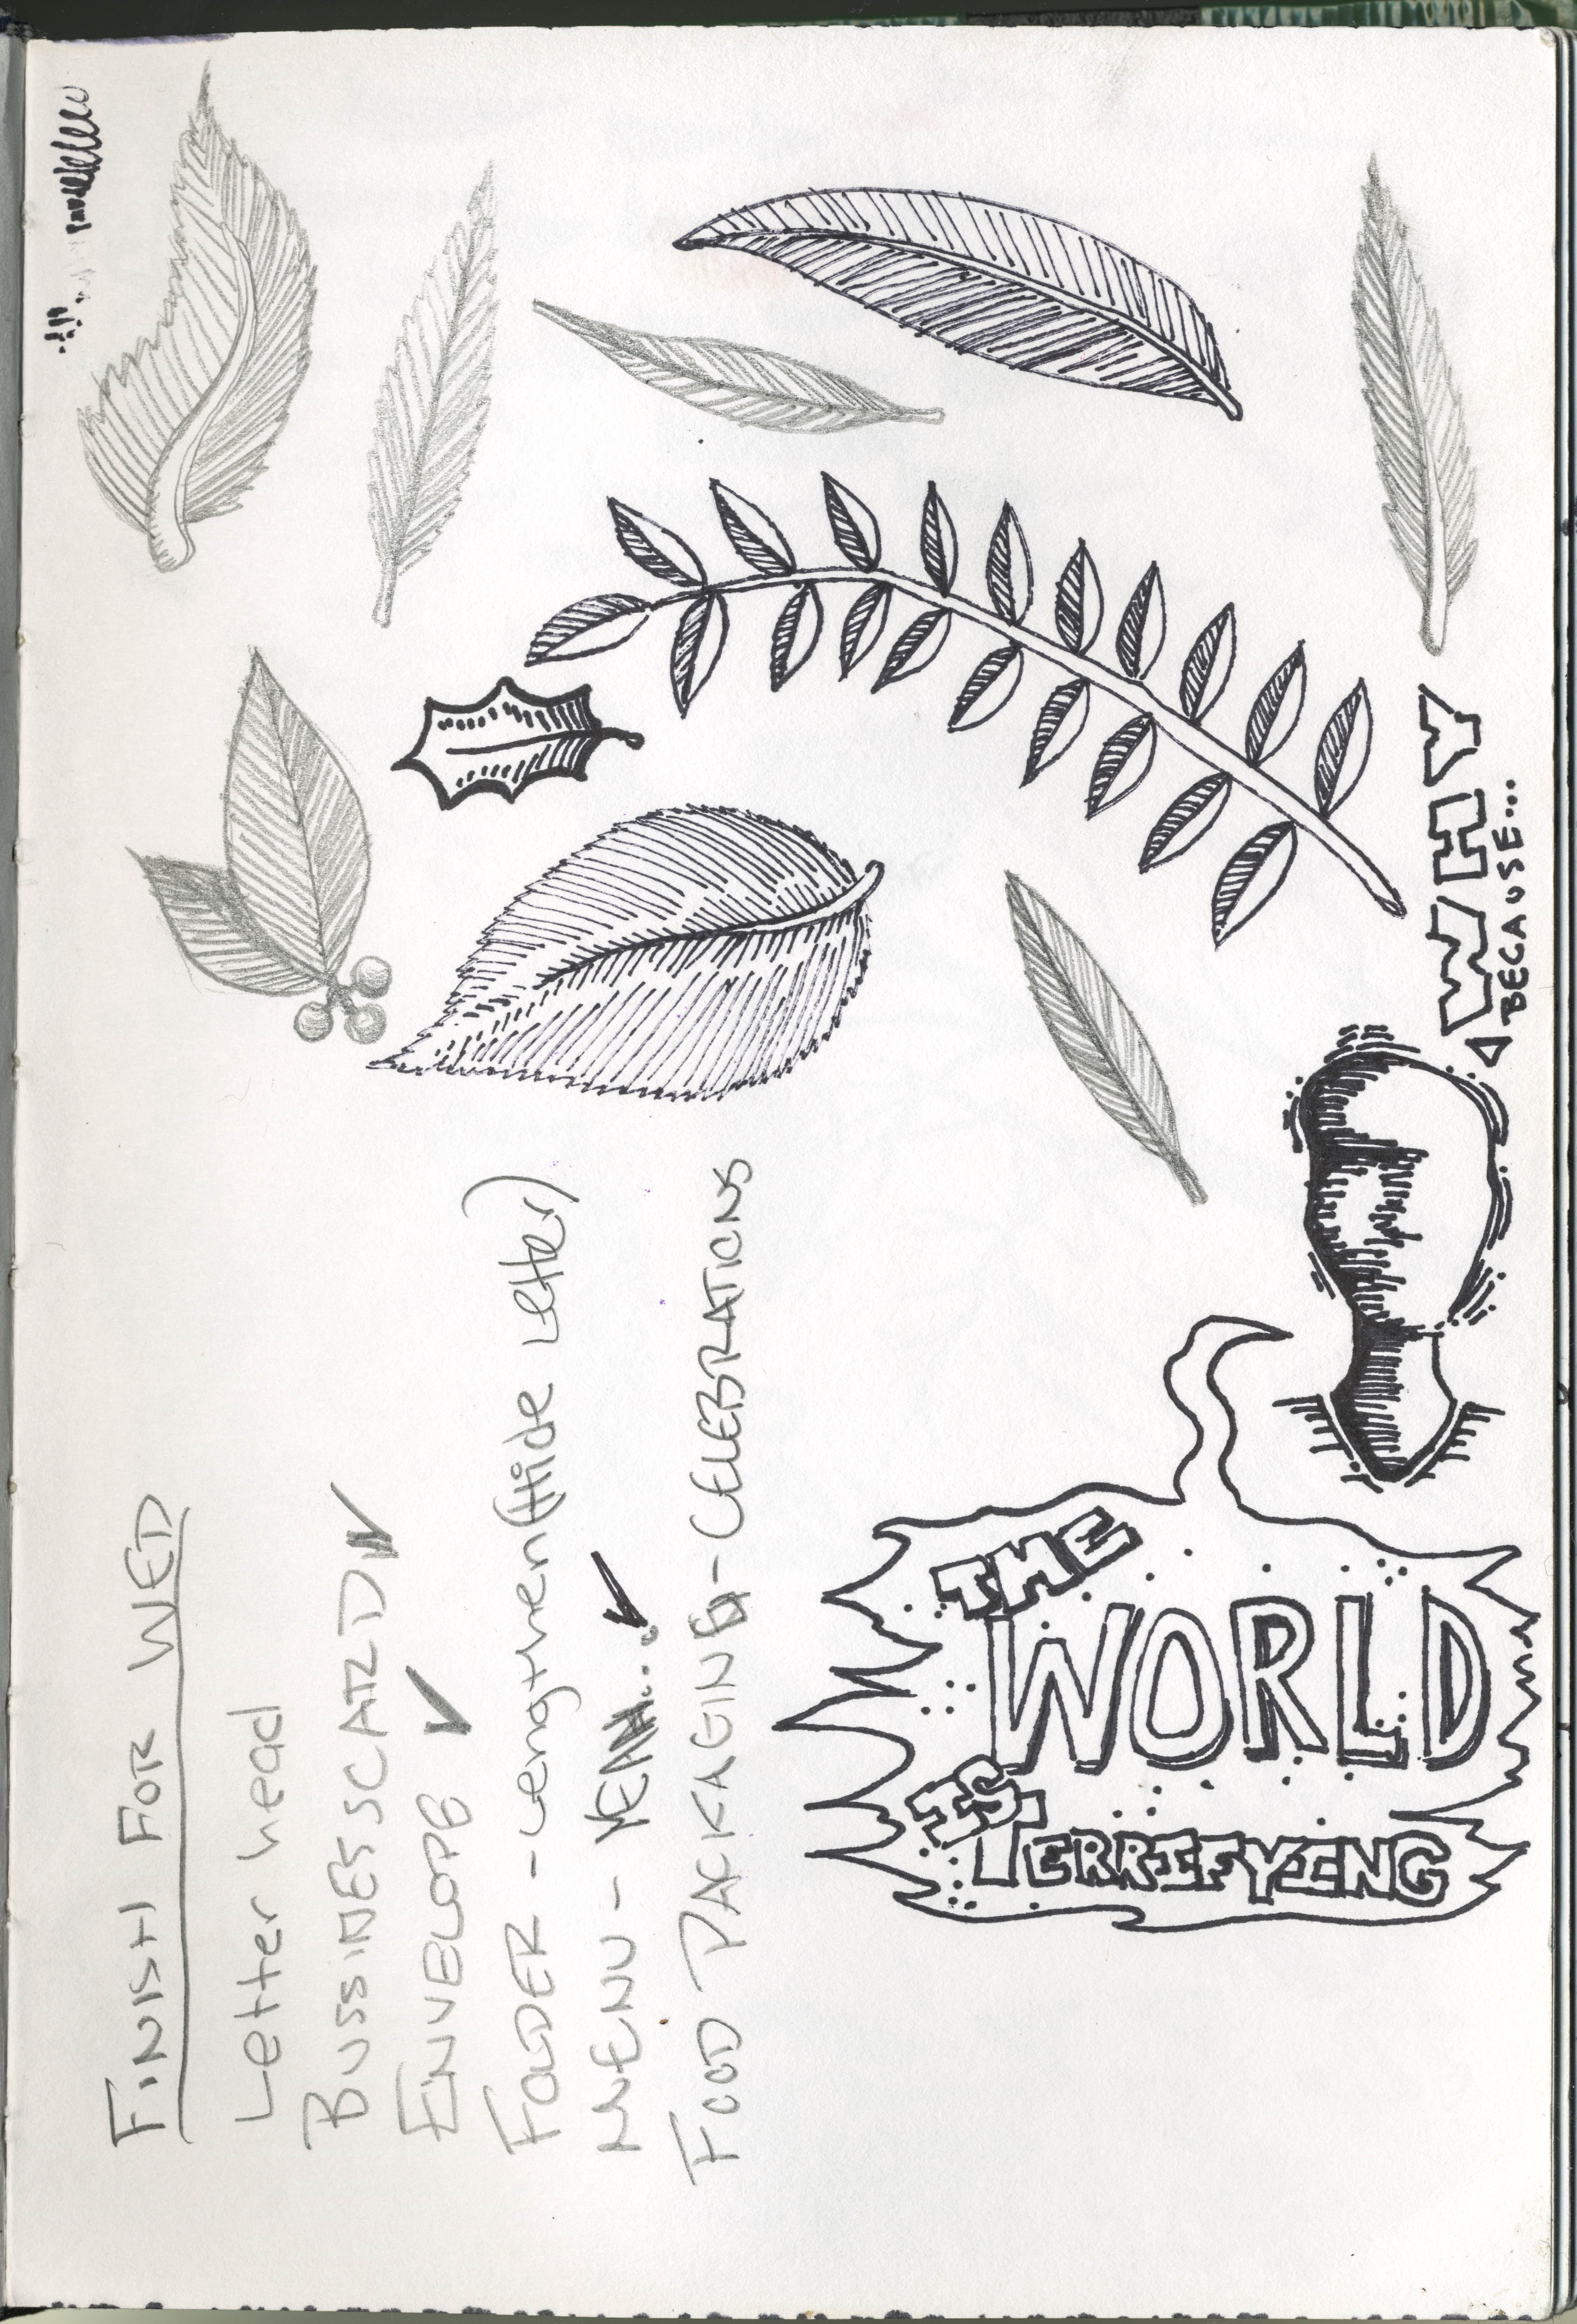 FINISH FOR WED
Letter head
BUSSINESSCARD
ENVELOPE
FOLDER - Lengthen (Hide Letter)
MENU - YEAH..
FOOD PACKAGING - CELEBRATIONS
WHY
BECAUSE...
THE
WORLD
IS
TERRIFYING